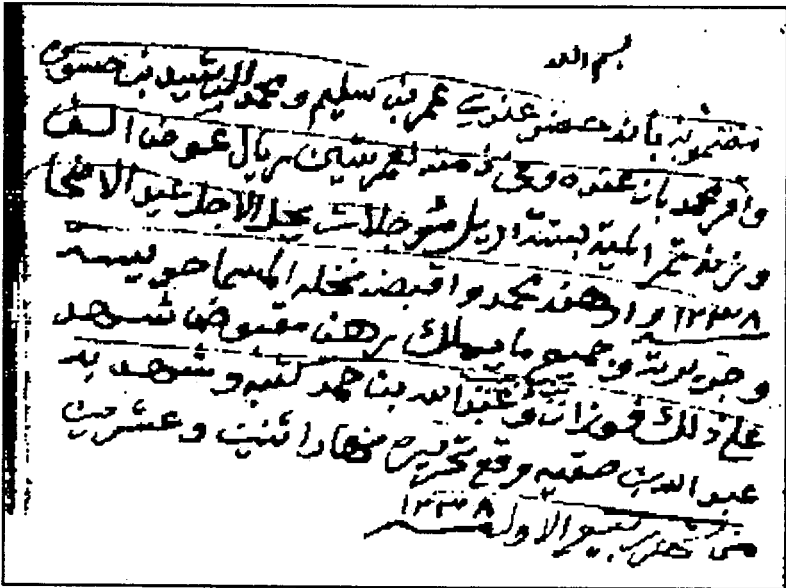 بسم الله
مضمونه بانه حضر عندي عمر بن سليم ومحمد الرشيد بن حسون
واقر محمد بان عنده وفي ذمته لعمر ستين ريال عوض الف
وزنة تمر المية بستة اريل مؤجلات يحل الاجل عيد الاضحى
١٣٣٨ وارهنه محمد واقبضه نخله المسما حويسه
وجريرته وجميع ما يملك رهن مقبوض شهد
على ذلك فوزان وعبدالله بن حمد كتبه وشهد به
عبدالله بن صقيه وقع تحريره نهار اثنين وعشرين
من شهر ربيع الاول ١٣٣٨